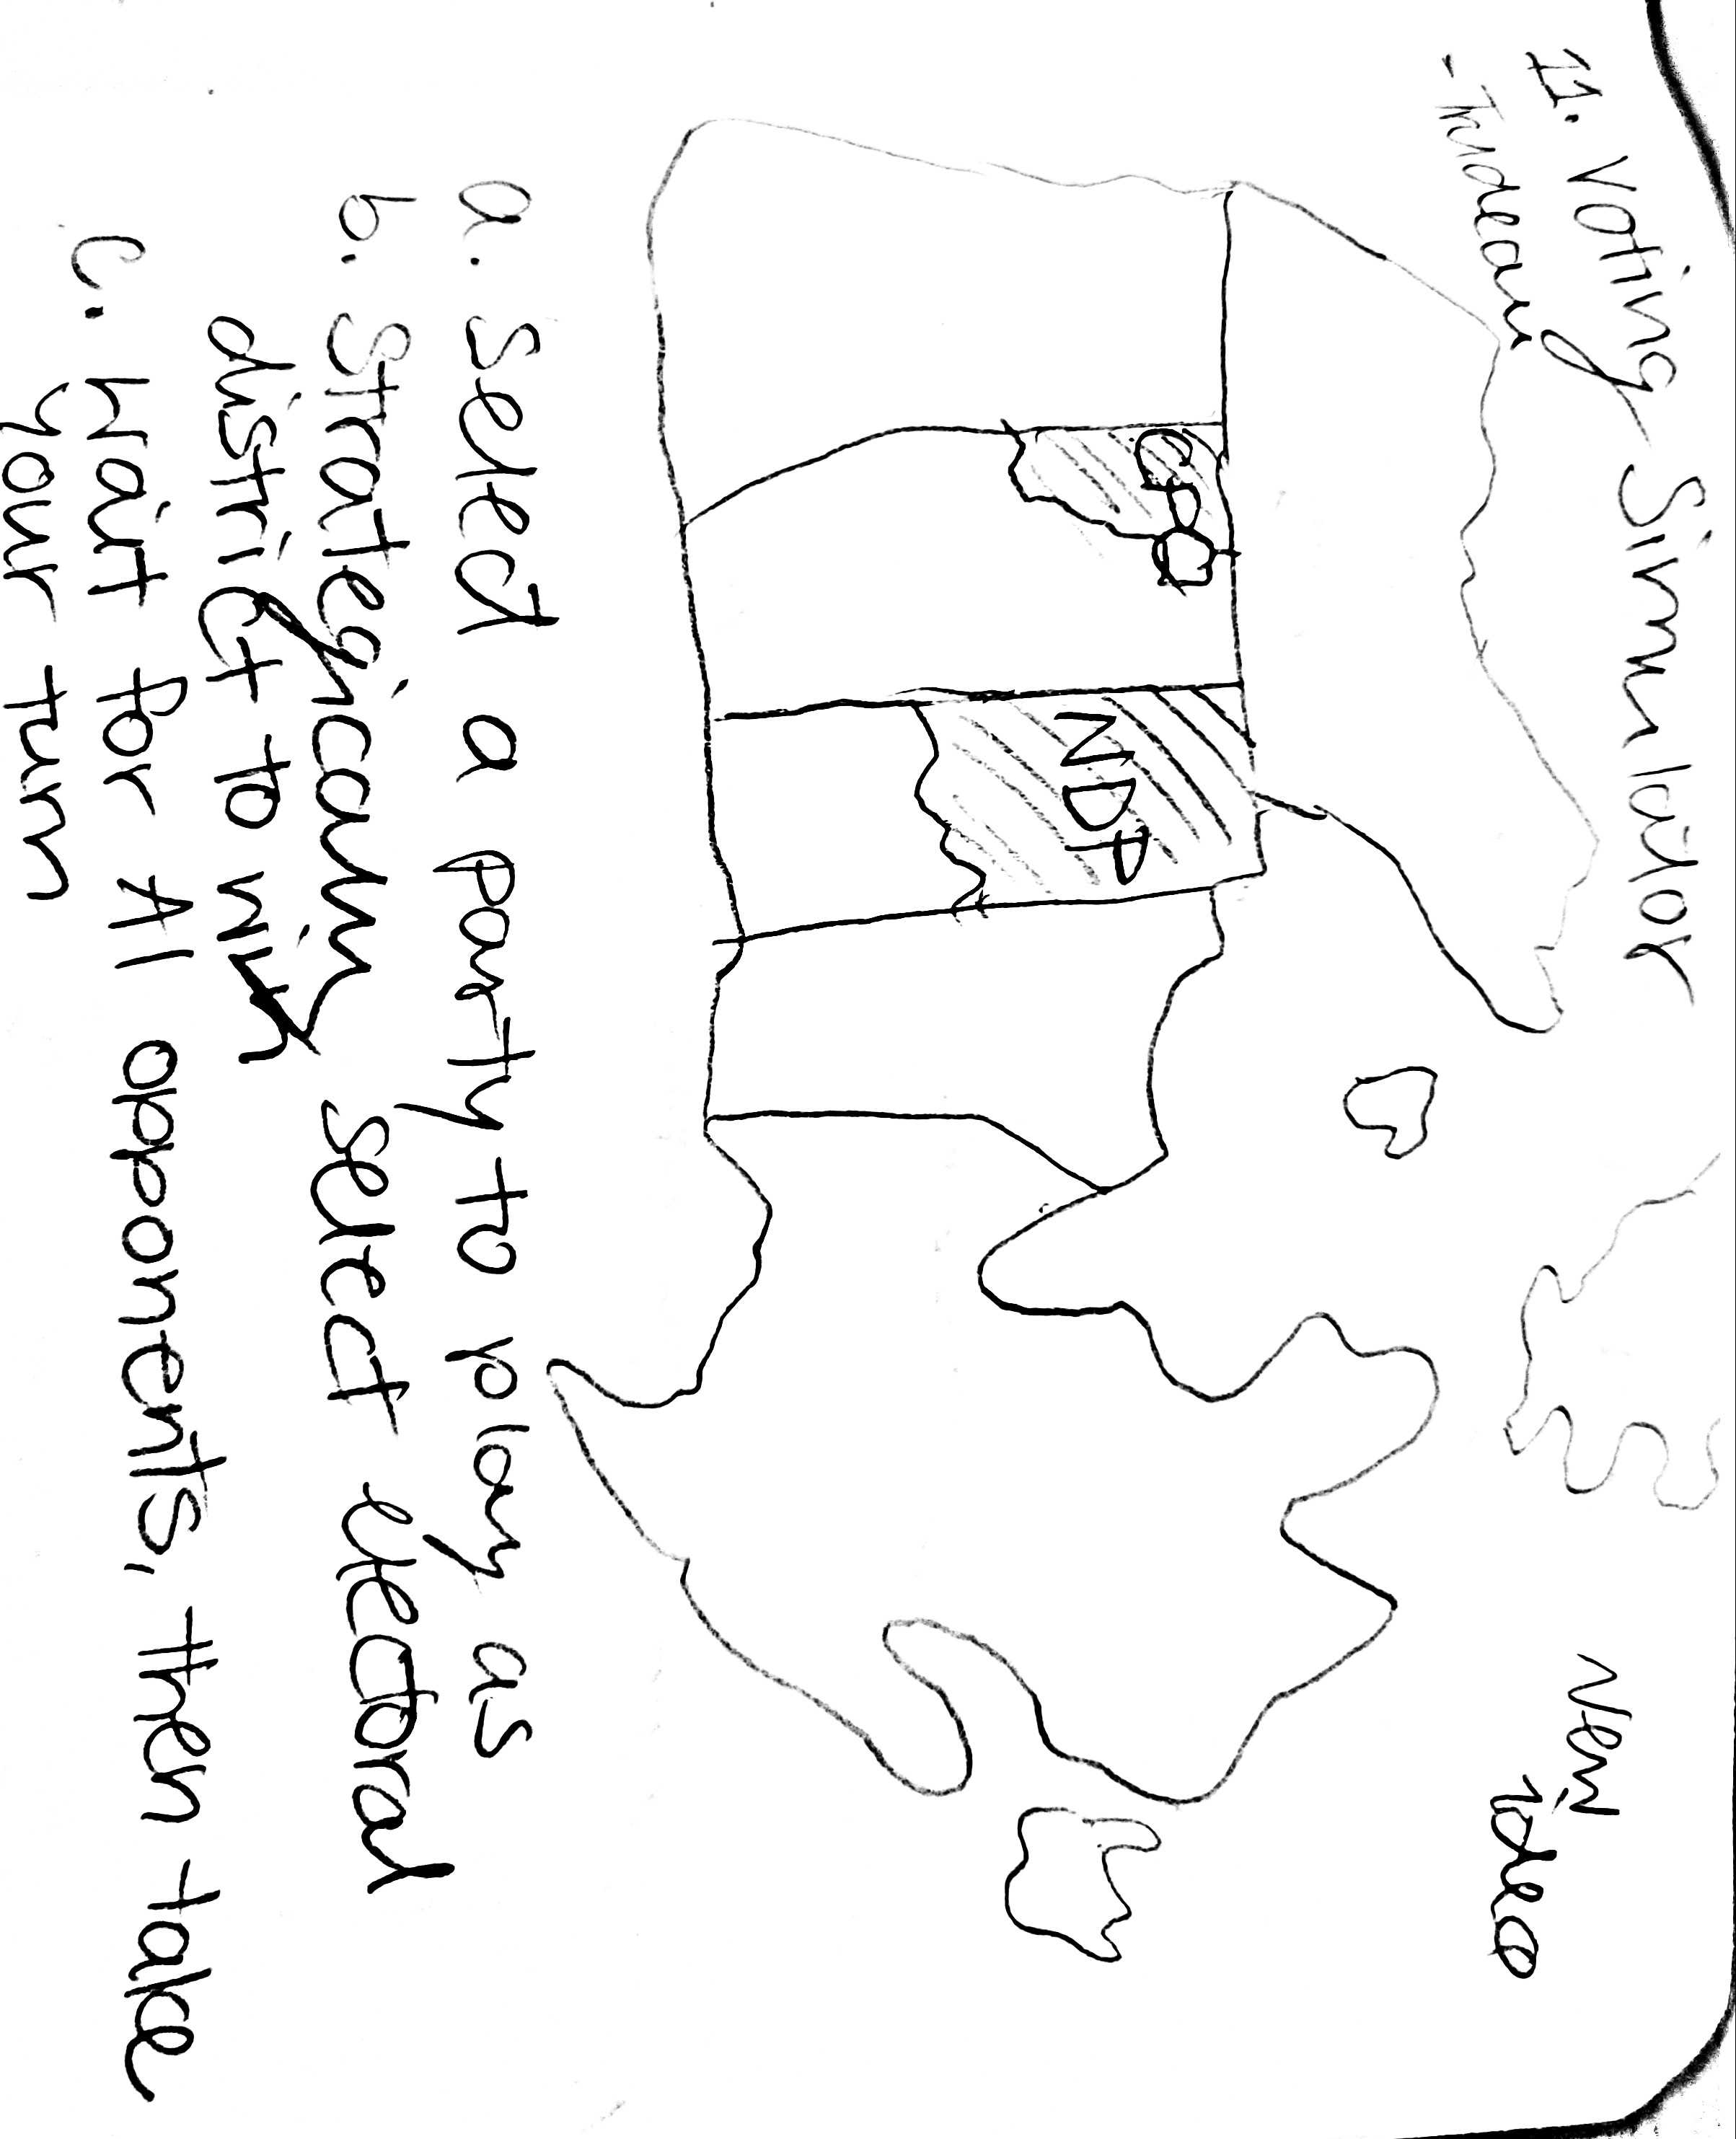 11. Voting Simulator
- Trudeau
New
idea
CPC
NDP
a. Select a party to play as
b. Strategically select electoral
district to win
c. Wait for AI opponents, then take
your turn